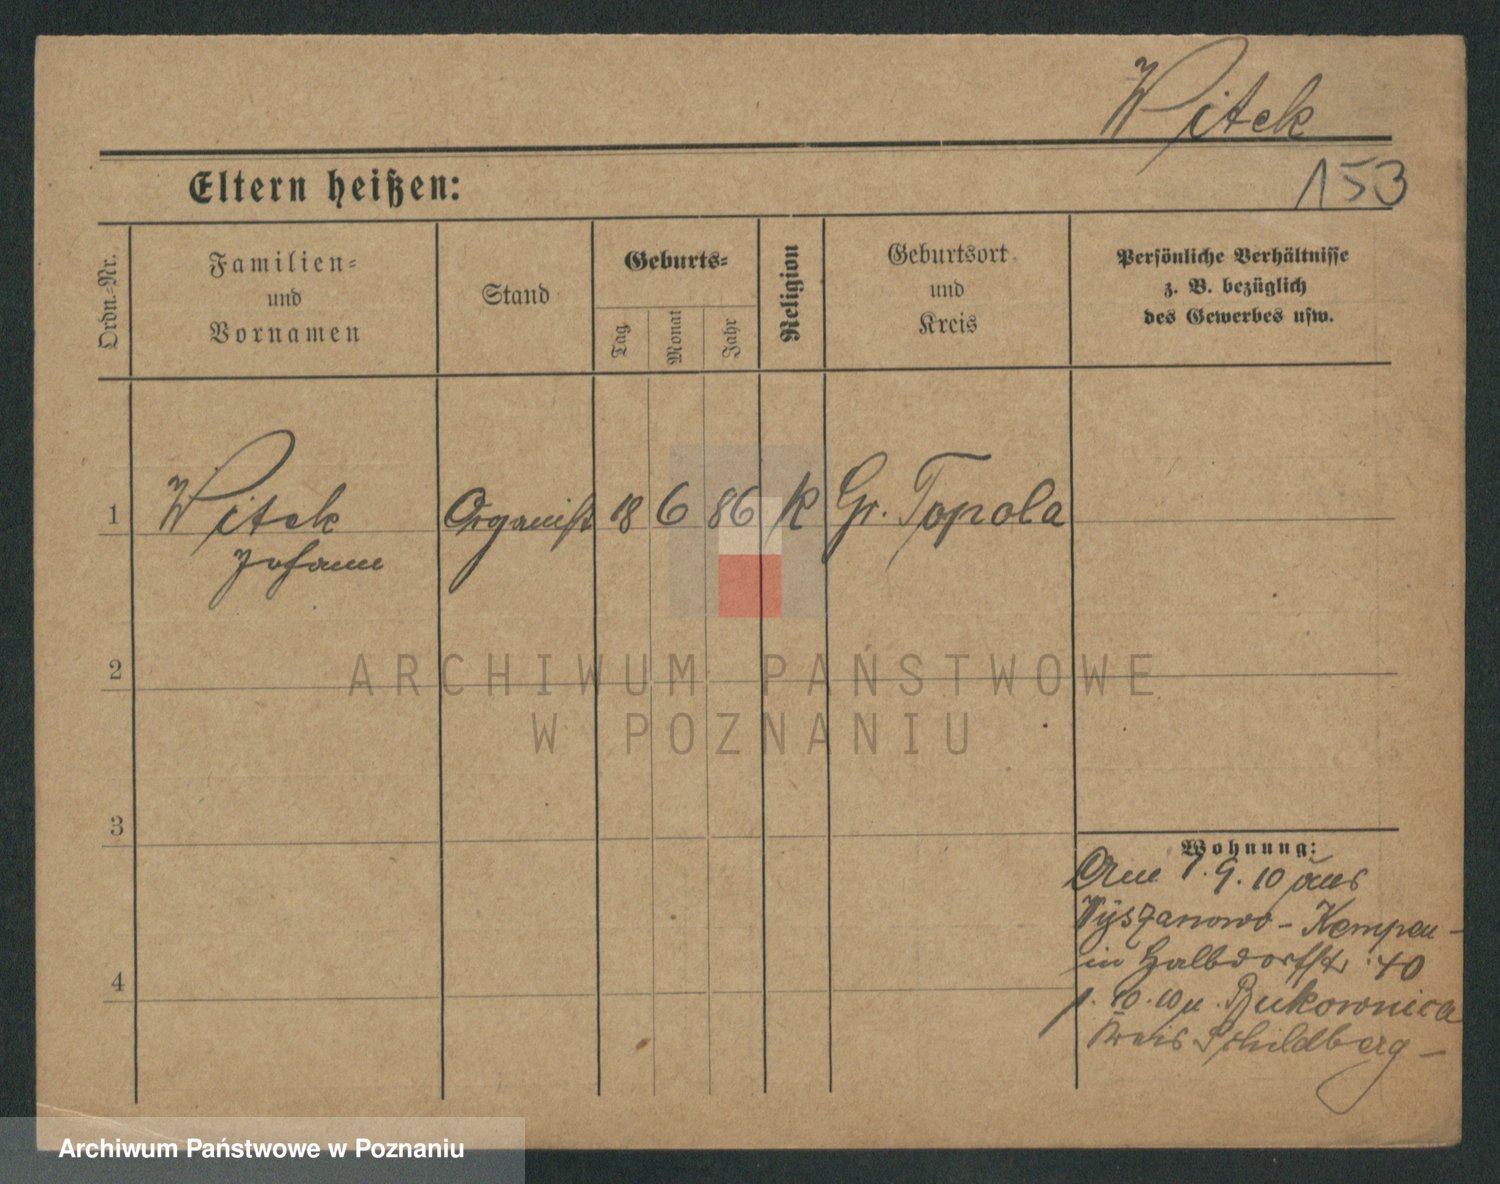 Witek
153
Eltern heißen:
Ordn.-Nr.
Familien-
und
Vornamen
Stand
Geburts-
Tag
Monat
Jahr
Religion
Geburtsort
und
Kreis
Persönliche Verhältnisse
z. B. bezüglich
des Gewerbes usw.
1
Witek
Johann
Organist
18
6
86
K
Gr. Topola
2
3
4
Wohnung:
Am 1. 9. 10 aus
Wyszanowo - Kempen -
in Halbdorfstr. 40
1. 10. 10 n. Bukownica
Kreis Schildberg -
ARCHIWUM PAŃSTWOWE
W POZNANIU
Archiwum Państwowe w Poznaniu